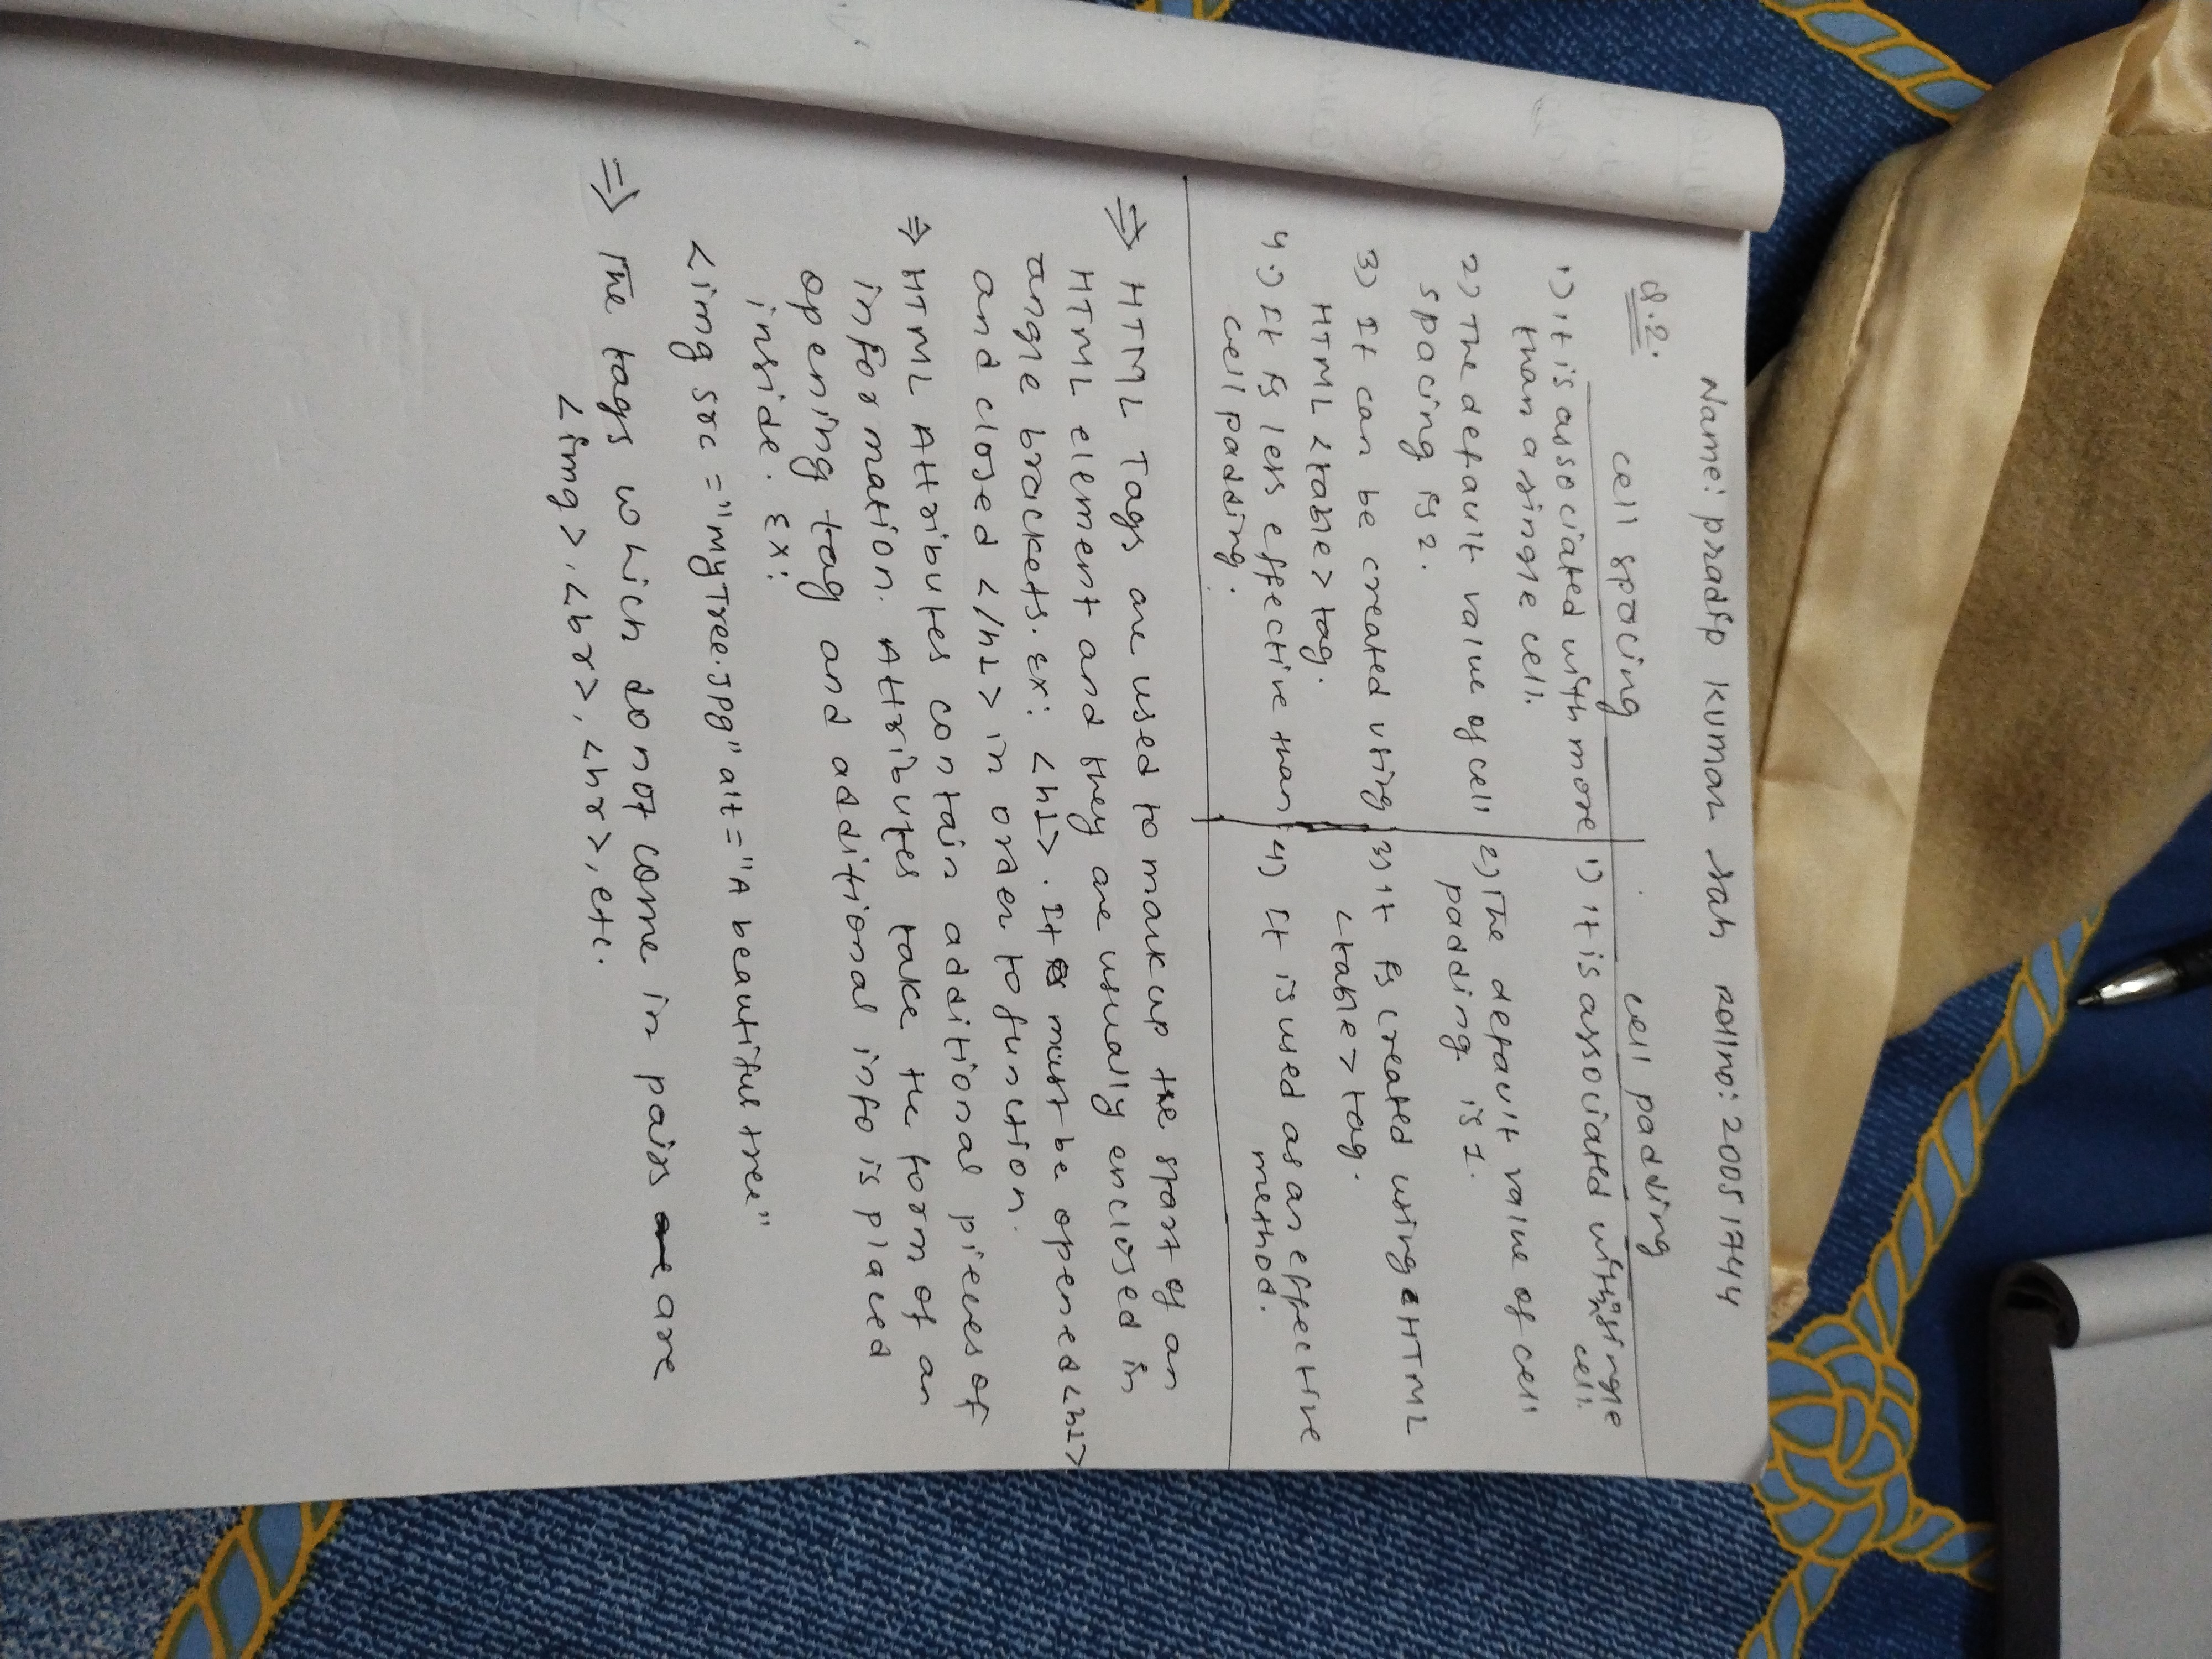 Name: Pradip Kumar Sah Rollno: 20051744
Q.2.
cell spacing
cell padding
1) It is associated with more
than a single cell.
1) It is associated with a single
cell.
2) The default value of cell
spacing is 2.
2) The default value of cell
padding is 1.
3) It can be created using
HTML <table> tag.
3) It is created using HTML
<table> tag.
4.) It is less effective than
cell padding.
4) It is used as an effective
method.
⇒ HTML Tags are used to mark up the start of an
HTML element and they are usually enclosed in
angle brackets. Ex: <h1>. It must be opened <h1>
and closed </h1> in order to function.
⇒ HTML Attributes contain additional pieces of
information. Attributes take the form of an
opening tag and additional info is placed
inside. Ex:
<img src ="MyTree.Jpg" alt="A beautiful tree"
⇒ The tags which do not come in pairs are
<img>, <br>, <hr>, etc.